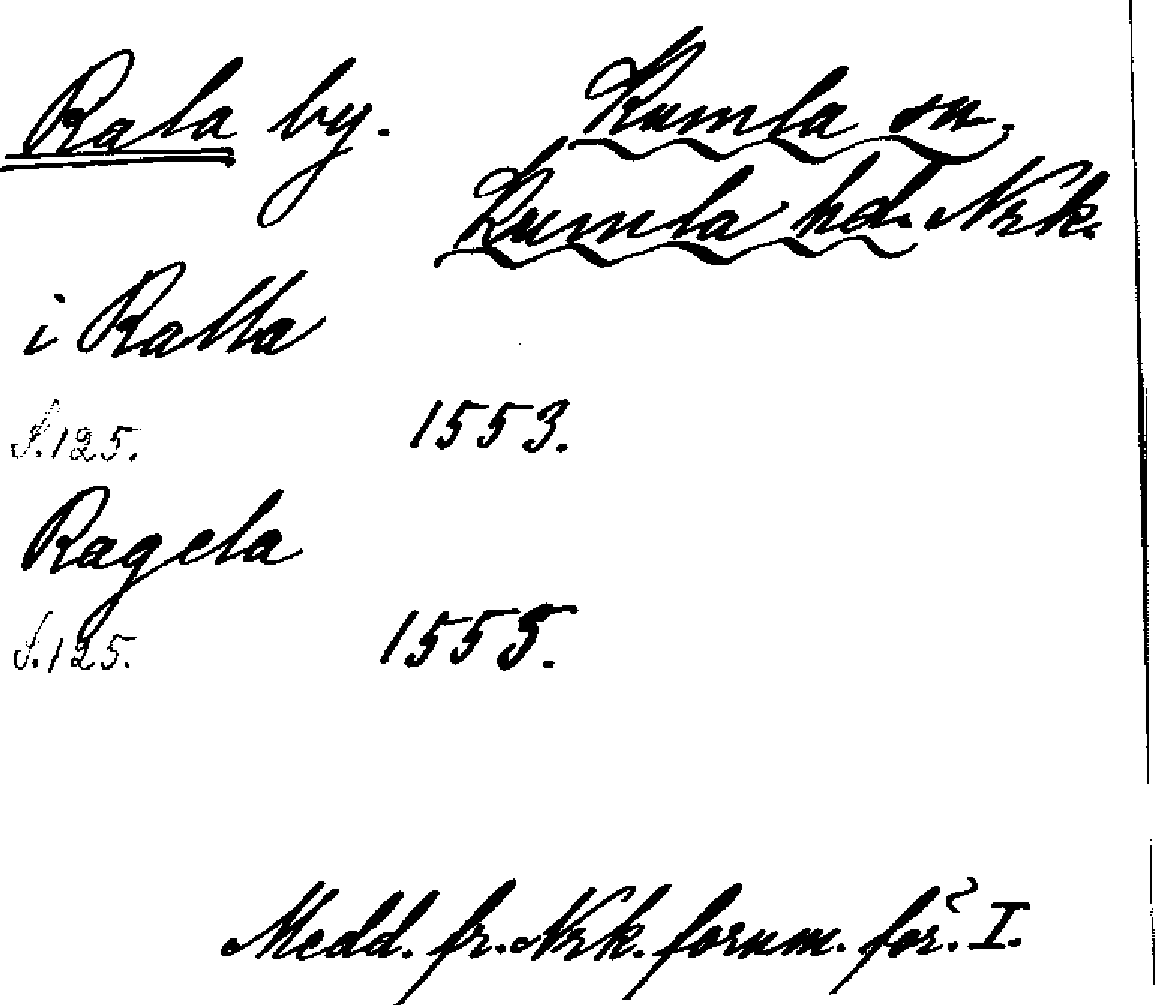 Rala by. Kumla sn,
Kumla hd. Nrk.
i Ralla
S.125. 1553.
Ragela
S.125. 1555.
Medd. fr. Nrk. fornm. för. I.